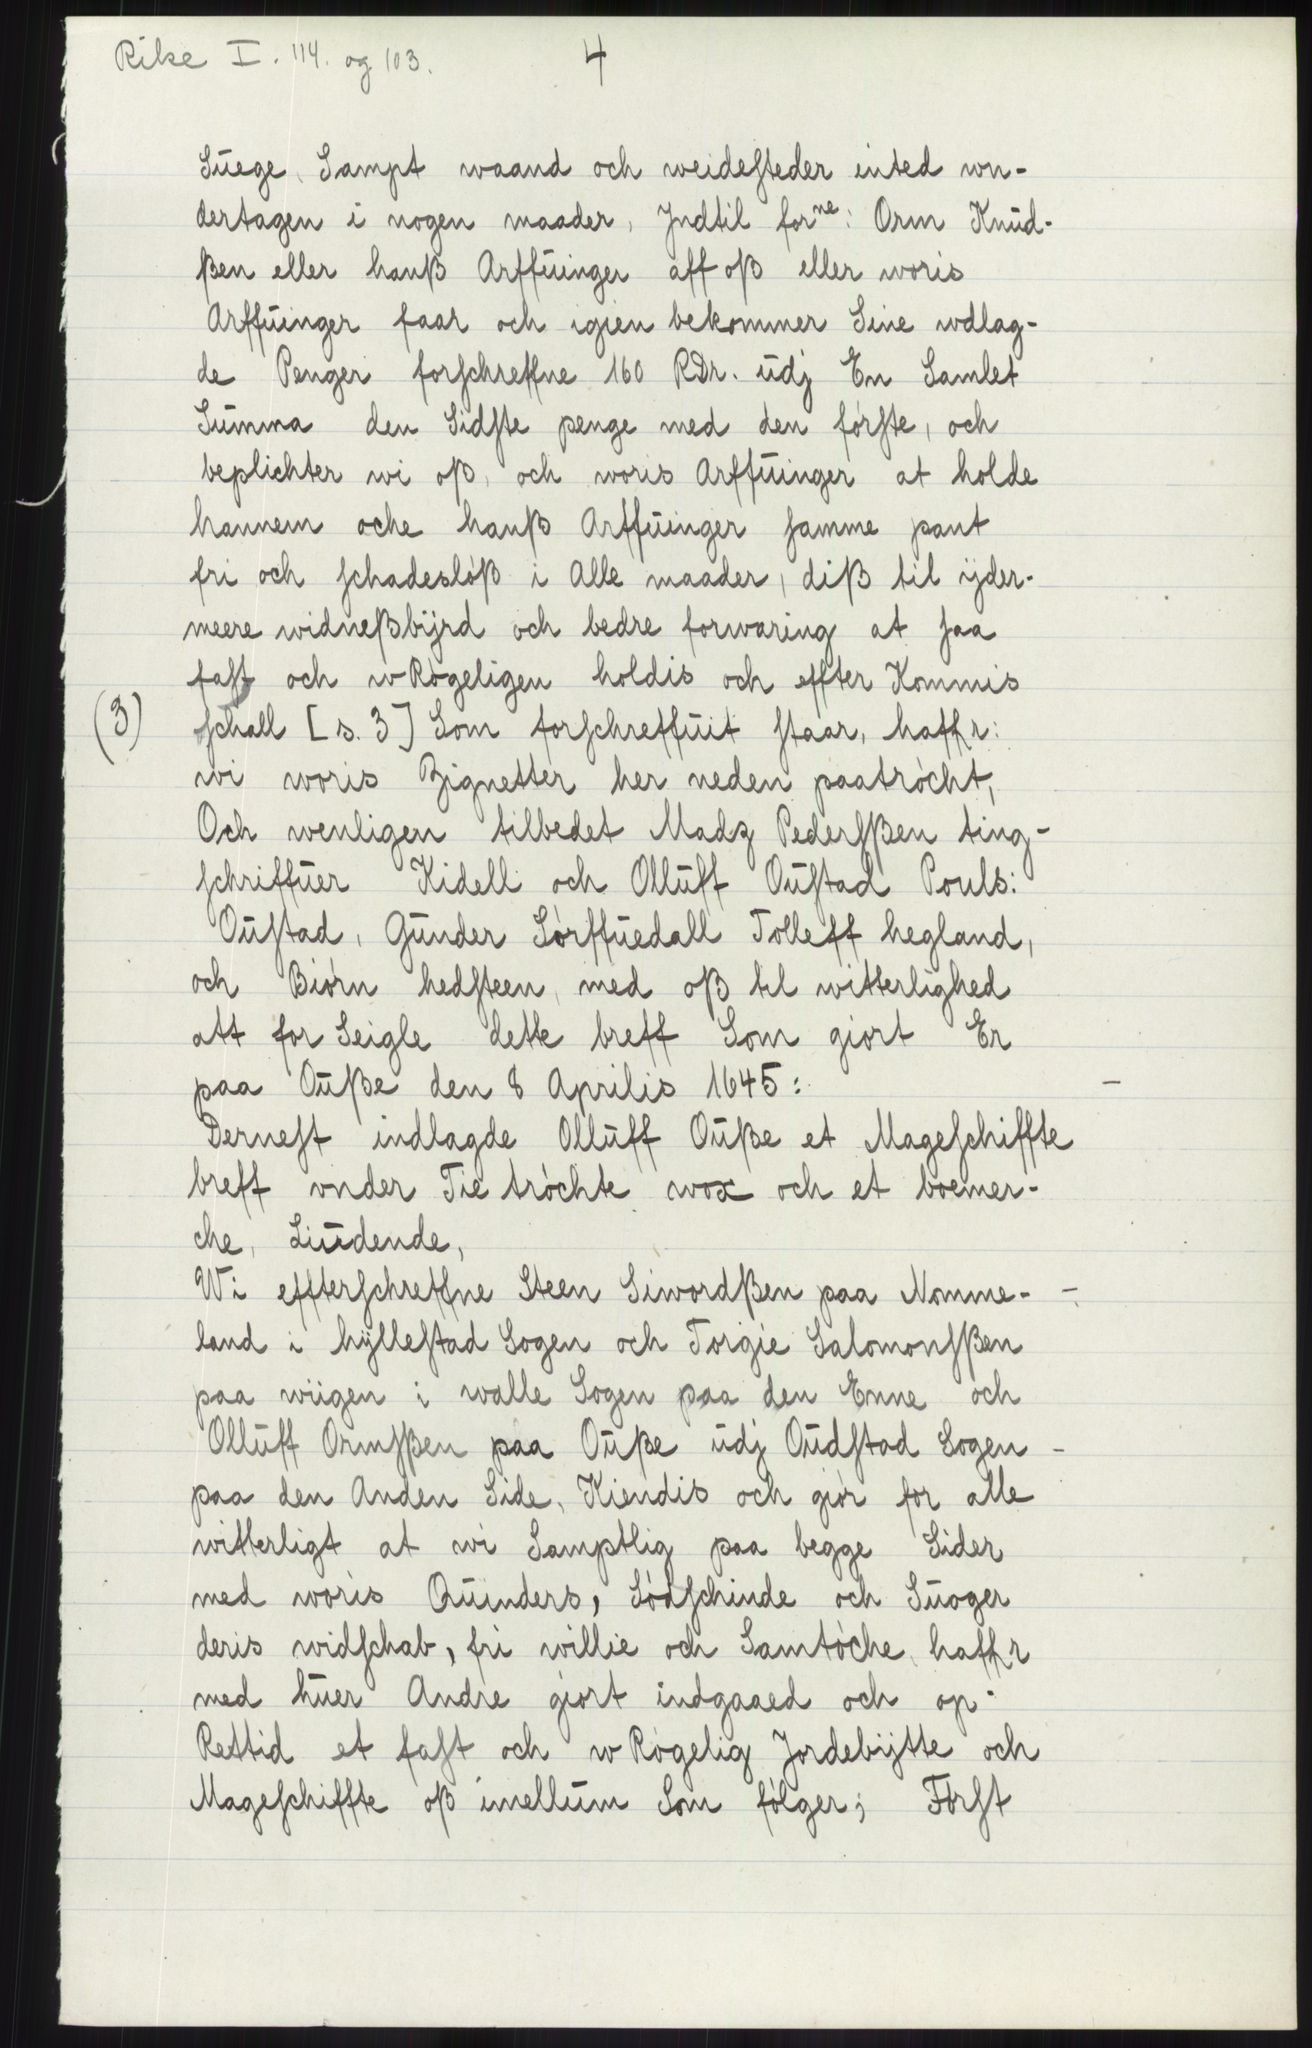 Rike I. 114. og 103.
4
Suege, Sampt waand och weidesteder inted wn-
dertagen i nogen maader, Jndtil forne: Orm Knud-
ßen eller hanß Arffuinger aff oß eller woris
Arffuinger faar och igien bekommer Sine wdlag-
de Penger forschreffne 160 RDr. udj En Samlet
Summa den Sidste penge med den første, och
beplichter wi oß, och woris Arffuinger at holde
hannem oche hanß Arffuinger samme pant
fri och schadesløß i Alle maader, diß til ÿder-
meere widneßbÿrd och bedre forwaring at saa
fast och wRøgeligen holdis och effter Kommis
(3)
schall [s. 3] Som forschreffuit staar, haffr:
wi woris Zignetter her neden paatrøcht,
Och wenligen tilbedet Madz Pederssßen ting-
schriffuer Kidell och Olluff Oustad Pouls:
Oustad, Gunder Sørffuedall Tolleff hegland,
och Biørn hedsteen, med oß til witterlighed
att for Seigle dette breff Som giort Er
paa Oußе den 8 Aprilis 1645:
Dernest indlagde Olluff Ouße et Mageschiffte
breff vnder Tie trøchte wox och et boemer-
che, Liudende,
Wi effterschreffne Steen Siwordßen paa Nomme-
land i hÿllestad Sogen och Torgie Salomonsßen
paa wiigen i walle Sogen paa den Enne och
Olluff Ormsßen paa Ouße udj Oudstad Sogen
paa den Anden Side, Kiendis och giør for alle
witterligt at wi Samptlig paa begge Sider
med woris Quinders, Sødschinde och Suoger
deris widschab, fri willie och Samtøche, haffr
med huer Andre giort indgaaed och op-
Rettid et fast och wRøgelig Jordebÿtte och
Mageschiffte oß imellum Som følger; Først